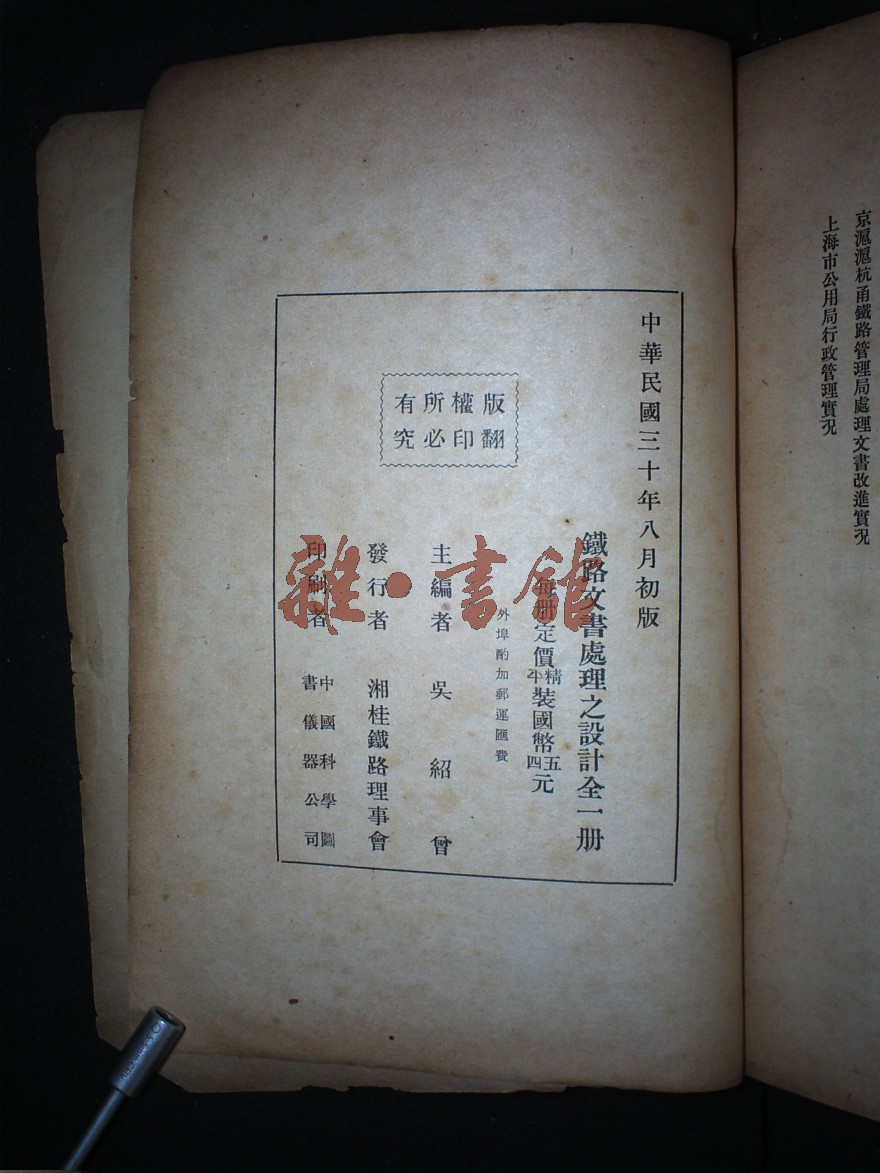 京滬滬杭甬鐵路管理局處理文書改進實況
上海市公用局行政管理實況
中華民國三十年八月初版
鐵路文書處理之設計全一册
每册定價精平裝國幣五四元
外埠酌加郵運匯費
版權所有
翻印必究
主編者 吳紹曾
發行者 湘桂鐵路理事會
印刷者 中國科學圖書儀器公司
雜·書館